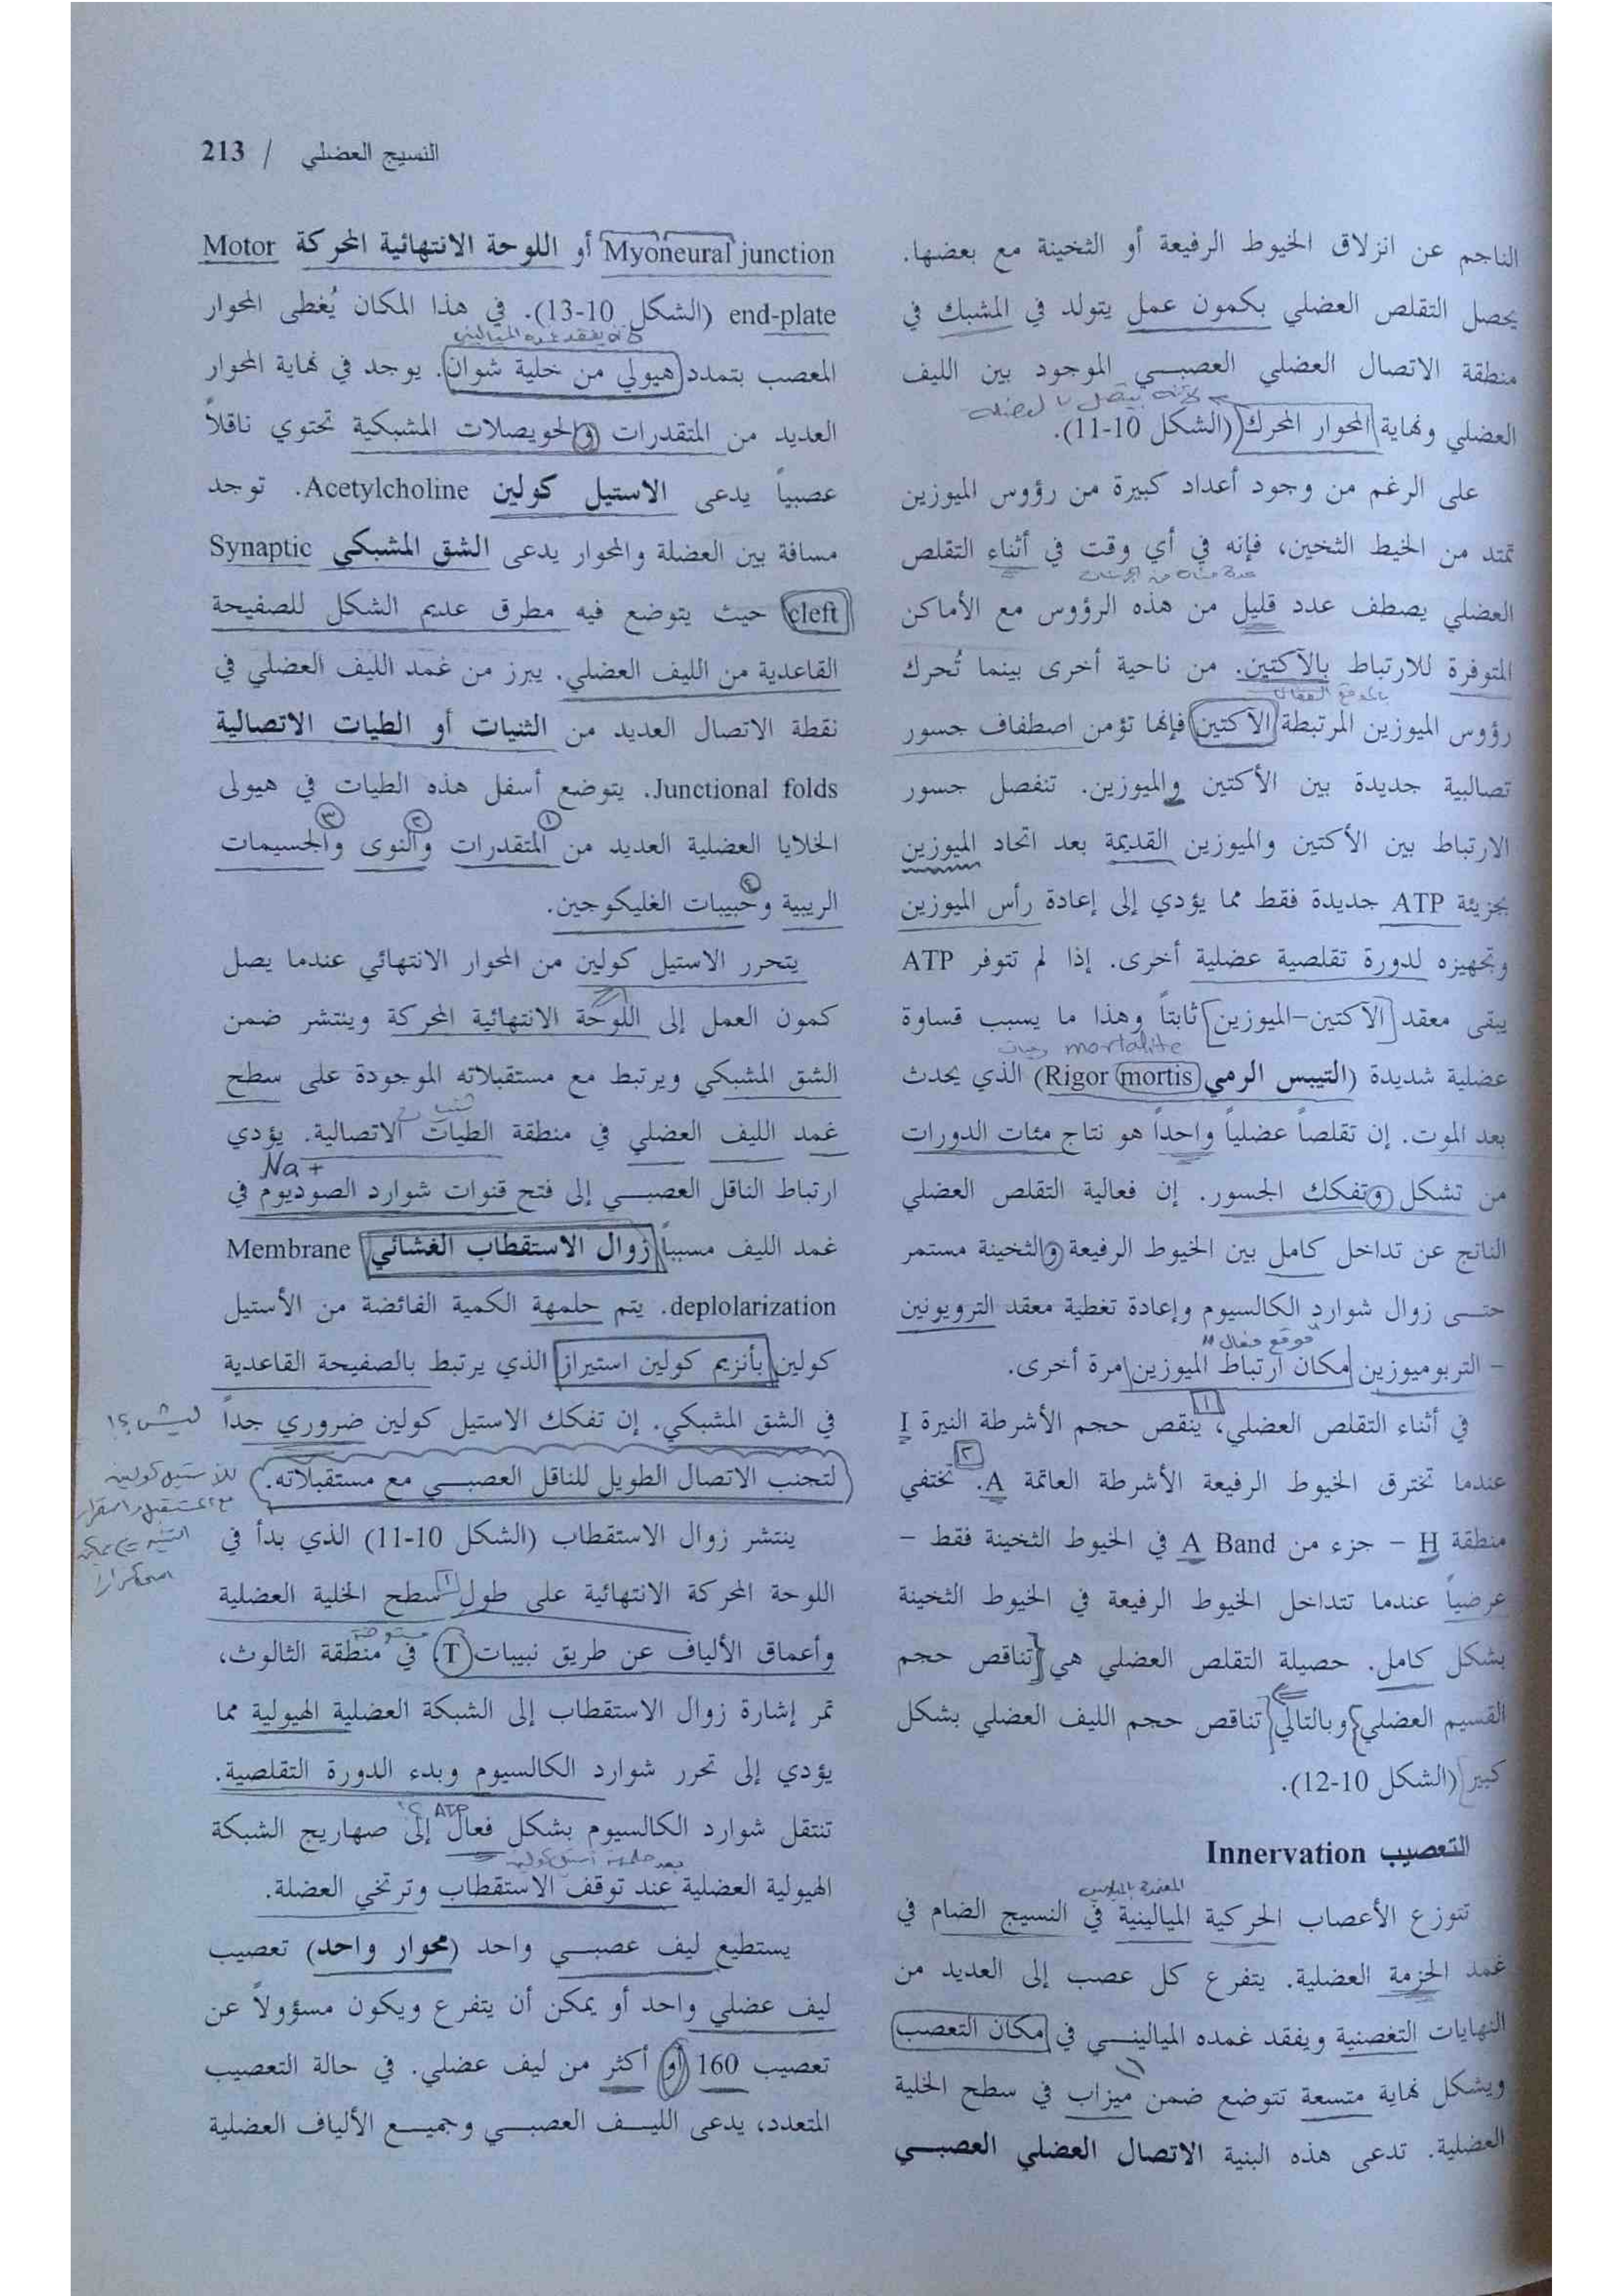 النسيج العضلي / 213
الناجم عن انزلاق الخيوط الرفيعة أو الثخينة مع بعضها.
يحصل التقلص العضلي بكمون عمل يتولد في المشبك في
منطقة الاتصال العضلي العصبي الموجود بين الليف
العضلي ونهاية المحوار المحرك (الشكل 10-11).
على الرغم من وجود أعداد كبيرة من رؤوس الميوزين
تمتد من الخيط الثخين، فإنه في أي وقت في أثناء التقلص
العضلي يصطف عدد قليل من هذه الرؤوس مع الأماكن
المتوفرة للارتباط بالآكتين. من ناحية أخرى بينما تُحرك
رؤوس الميوزين المرتبطة الآكتين فإنها تؤمن اصطفاف جسور
تصالبية جديدة بين الأكتين والميوزين. تنفصل جسور
الارتباط بين الأكتين والميوزين القديمة بعد اتحاد الميوزين
بجزيئة ATP جديدة فقط مما يؤدي إلى إعادة رأس الميوزين
وتجهيزه لدورة تقلصية عضلية أخرى. إذا لم تتوفر ATP
يبقى معقد الآكتين-الميوزين ثابتاً وهذا ما يسبب قساوة
mortalite
عضلية شديدة (التيبس الرمي Rigor mortis) الذي يحدث
بعد الموت. إن تقلصاً عضلياً واحداً هو نتاج مئات الدورات
من تشكل وتفكك الجسور. إن فعالية التقلص العضلي
الناتج عن تداخل كامل بين الخيوط الرفيعة والثخينة مستمر
حتى زوال شوارد الكالسيوم وإعادة تغطية معقد الترويونين
موقع فعال
- التربوميوزين مكان ارتباط الميوزين مرة أخرى.
في أثناء التقلص العضلي، ينقص حجم الأشرطة النيرة I
عندما تخترق الخيوط الرفيعة الأشرطة العاتمة A. تختفي
منطقة H - جزء من A Band في الخيوط الثخينة فقط -
عرضياً عندما تتداخل الخيوط الرفيعة في الخيوط الثخينة
بشكل كامل. حصيلة التقلص العضلي هي تناقص حجم
القسيم العضلي وبالتالي تناقص حجم الليف العضلي بشكل
كبير (الشكل 10-12).
التعصيب Innervation
تتوزع الأعصاب الحركية الميالينية في النسيج الضام في
غمد الحزمة العضلية. يتفرع كل عصب إلى العديد من
النهايات التغصنية ويفقد غمده الميالينـي في مكان التعصب
ويشكل نهاية متسعة تتوضع ضمن ميزاب في سطح الخلية
العضلية. تدعى هذه البنية الاتصال العضلي العصبي
Myoneural junction أو اللوحة الانتهائية المحركة Motor
end-plate (الشكل 10-13). في هذا المكان يُغطى المحوار
المعصب بتمدد هيولي من خلية شوان. يوجد في نهاية المحوار
العديد من المتقدرات والحويصلات المشبكية تحتوي ناقلاً
عصبياً يدعى الاستيل كولين Acetylcholine. توجد
مسافة بين العضلة والمحوار يدعى الشق المشبكي Synaptic
cleft حيث يتوضع فيه مطرق عديم الشكل للصفيحة
القاعدية من الليف العضلي. يبرز من غمد الليف العضلي في
نقطة الاتصال العديد من الثنيات أو الطيات الاتصالية
Junctional folds. يتوضع أسفل هذه الطيات في هيولى
١ ٢ ٣
الخلايا العضلية العديد من المتقدرات والنوى والجسيمات
٤
الريبية وحبيبات الغليكوجين.
يتحرر الاستيل كولين من المحوار الانتهائي عندما يصل
كمون العمل إلى اللوحة الانتهائية المحركة وينتشر ضمن
الشق المشبكي ويرتبط مع مستقبلاته الموجودة على سطح
غمد الليف العضلي في منطقة الطيات الاتصالية. يؤدي
Na+
ارتباط الناقل العصبي إلى فتح قنوات شوارد الصوديوم في
غمد الليف مسبباً زوال الاستقطاب الغشائي Membrane
deplolarization. يتم حلمهة الكمية الفائضة من الأستيل
كولين بأنزيم كولين استيراز الذي يرتبط بالصفيحة القاعدية
في الشق المشبكي. إن تفكك الاستيل كولين ضروري جداً
ليش؟!
لتجنب الاتصال الطويل للناقل العصبي مع مستقبلاته.
ينتشر زوال الاستقطاب (الشكل 10-11) الذي بدأ في
اللوحة المحركة الانتهائية على طول سطح الخلية العضلية
وأعماق الألياف عن طريق نبيبات T. في منطقة الثالوث،
تمر إشارة زوال الاستقطاب إلى الشبكة العضلية الهيولية مما
يؤدي إلى تحرر شوارد الكالسيوم وبدء الدورة التقلصية.
ATP
تنتقل شوارد الكالسيوم بشكل فعال إلى صهاريج الشبكة
الهيولية العضلية عند توقف الاستقطاب وترتخي العضلة.
يستطيع ليف عصبي واحد (محوار واحد) تعصيب
ليف عضلي واحد أو يمكن أن يتفرع ويكون مسؤولاً عن
تعصيب 160 أو أكثر من ليف عضلي. في حالة التعصيب
المتعدد، يدعى الليف العصبي وجميع الألياف العضلية